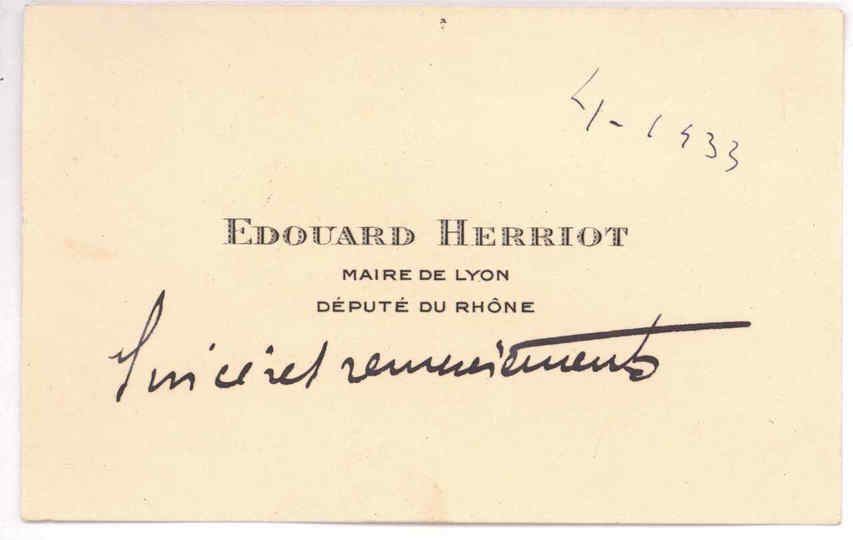 4-1933
EDOUARD HERRIOT
MAIRE DE LYON
DÉPUTÉ DU RHÔNE
Sincères remerciements